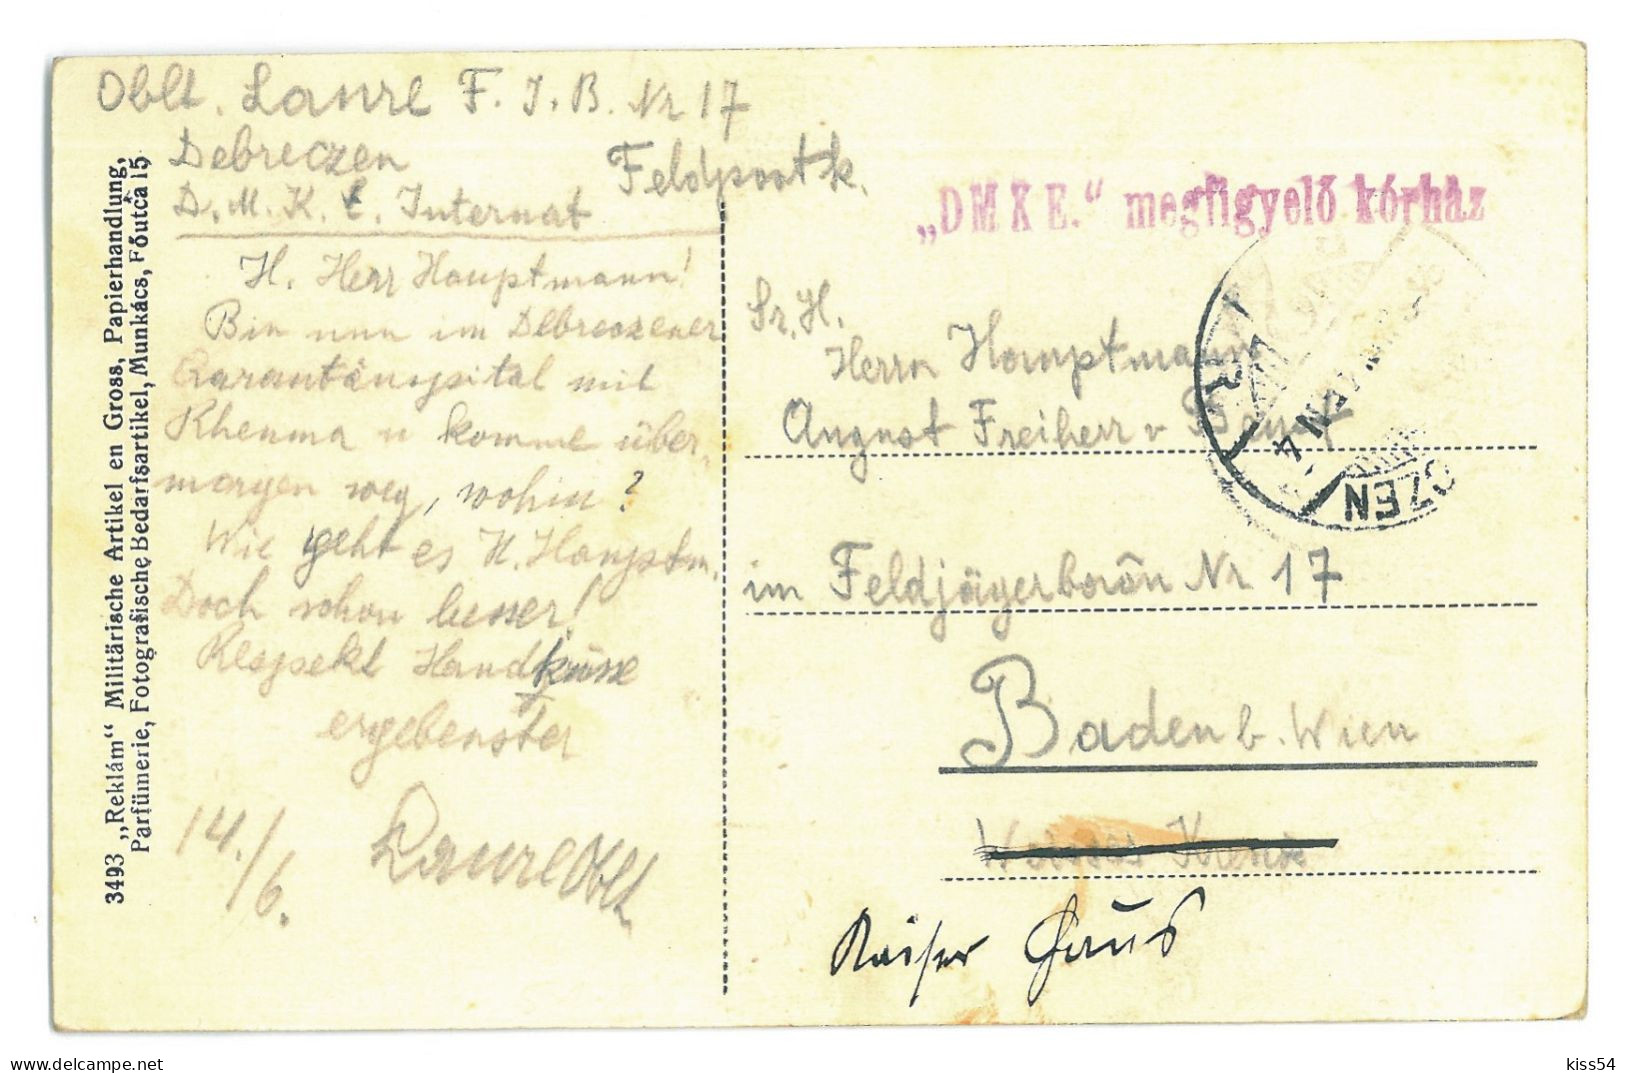 Oblt. Laurl F. J. B. Nr 17
Debreczen Feldpostk.
D. M. K. E. Internat
H. Herr Hauptmann!
Bin nun im Debreczener
Qarantänspital mit
Rheuma u komme über-
morgen weg, wohin?
Wie geht es H. Hauptm.
Doch schon besser!
Respekt Handküsse
ergebenster
14./6. Laurl Oblt
„DMKE.“ megfigyelő kórház
Sr. H.
Herrn Hauptmann
August Freiherr v
im Feldjägerbaon Nr 17
Baden b. Wien
Kaiser Haus
CZEN
3493 „Reklám“ Militärische Artikel en Gross, Papierhandlung,
Parfümerie, Fotografische Bedarfsartikel, Munkács, Főutca 15
delcampe.net
kiss54